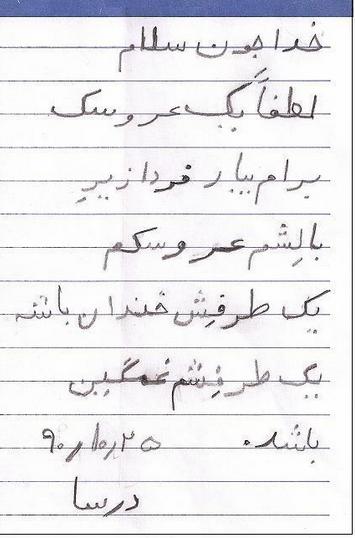 خدا جون سلام
لطفاً یک عروسک
برام بیار فردا زیرِ
بالِشم عروسکم
یک طرفِش خندان باشه
یک طرفِشم غمگین
باشد.    ۹۰/۱۰/۲۵
درسا